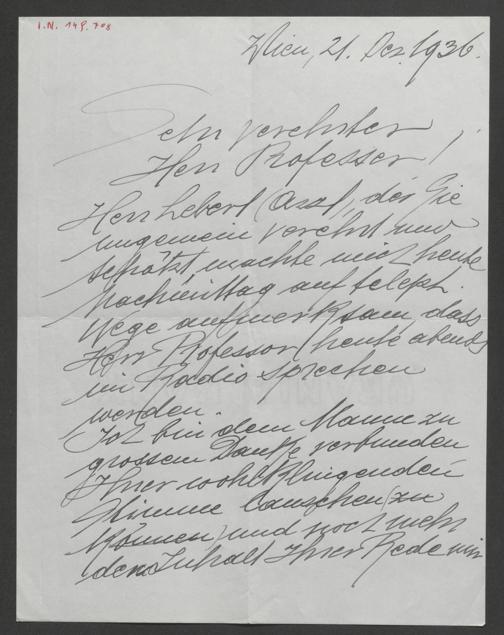 I.N. 149.708
Wien, 21. Dez. 1936.
Sehr verehrter
Herr Professor!
Herr Lebert (Arzt), der Sie
ungemein verehrt und
schätzt, machte mich heute
Nachmittag auf teleph.
Wege aufmerksam, dass
Herr Professor heute abends
im Radio sprechen
werden.
Ich bin dem Manne zu
grossem Danke verbunden
Ihrer wohlklingenden
Stimme lauschen zu
können, und noch mehr
den Inhalt Ihrer Rede